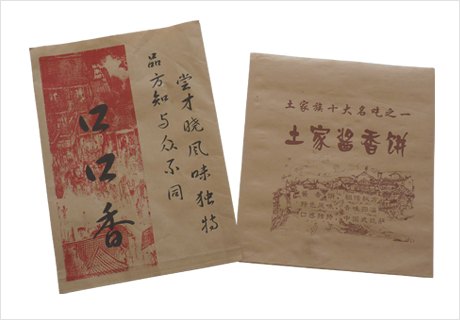 口口香
尝才晓风味独特
品方知与众不同
土家族十大名吃之一
土家酱香饼